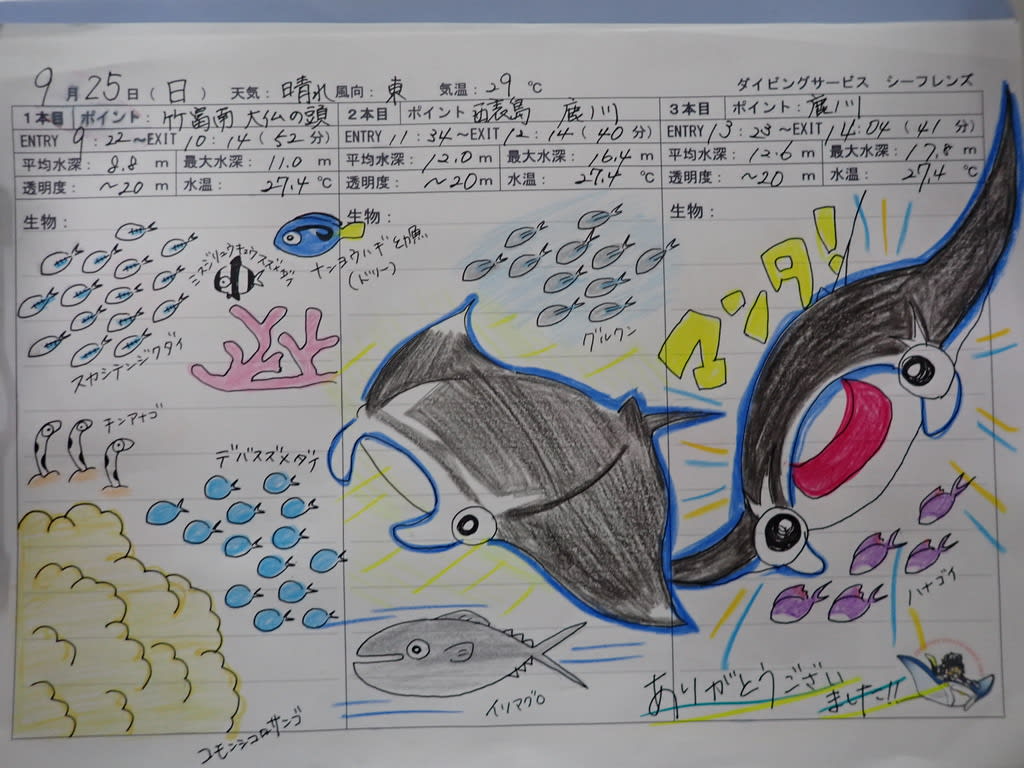 9月25日(日) 天気:晴れ 風向:東 気温:29℃ ダイビングサービス シーフレンズ
1本目 ポイント:竹富南 大仏の頭
ENTRY 9:22~EXIT 10:14(52分)
平均水深:8.8m 最大水深:11.0m
透明度:~20m 水温:27.4℃
生物:
2本目 ポイント 西表島 鹿川
ENTRY 11:34~EXIT 12:14(40分)
平均水深:12.0m 最大水深:16.4m
透明度:~20m 水温:27.4℃
生物:
3本目 ポイント:鹿川
ENTRY 13:23~EXIT 14:04(41分)
平均水深:12.6m 最大水深:17.8m
透明度:~20m 水温:27.4℃
生物:
ミスジリュウキュウスズメダイ
ナンヨウハギ幼魚
(ドリー)
スカシテンジクダイ
チンアナゴ
デバスズメダイ
コモンシコロサンゴ
グルクン
イソマグロ
マンタ!
ハナゴイ
ありがとうござい
ました!!